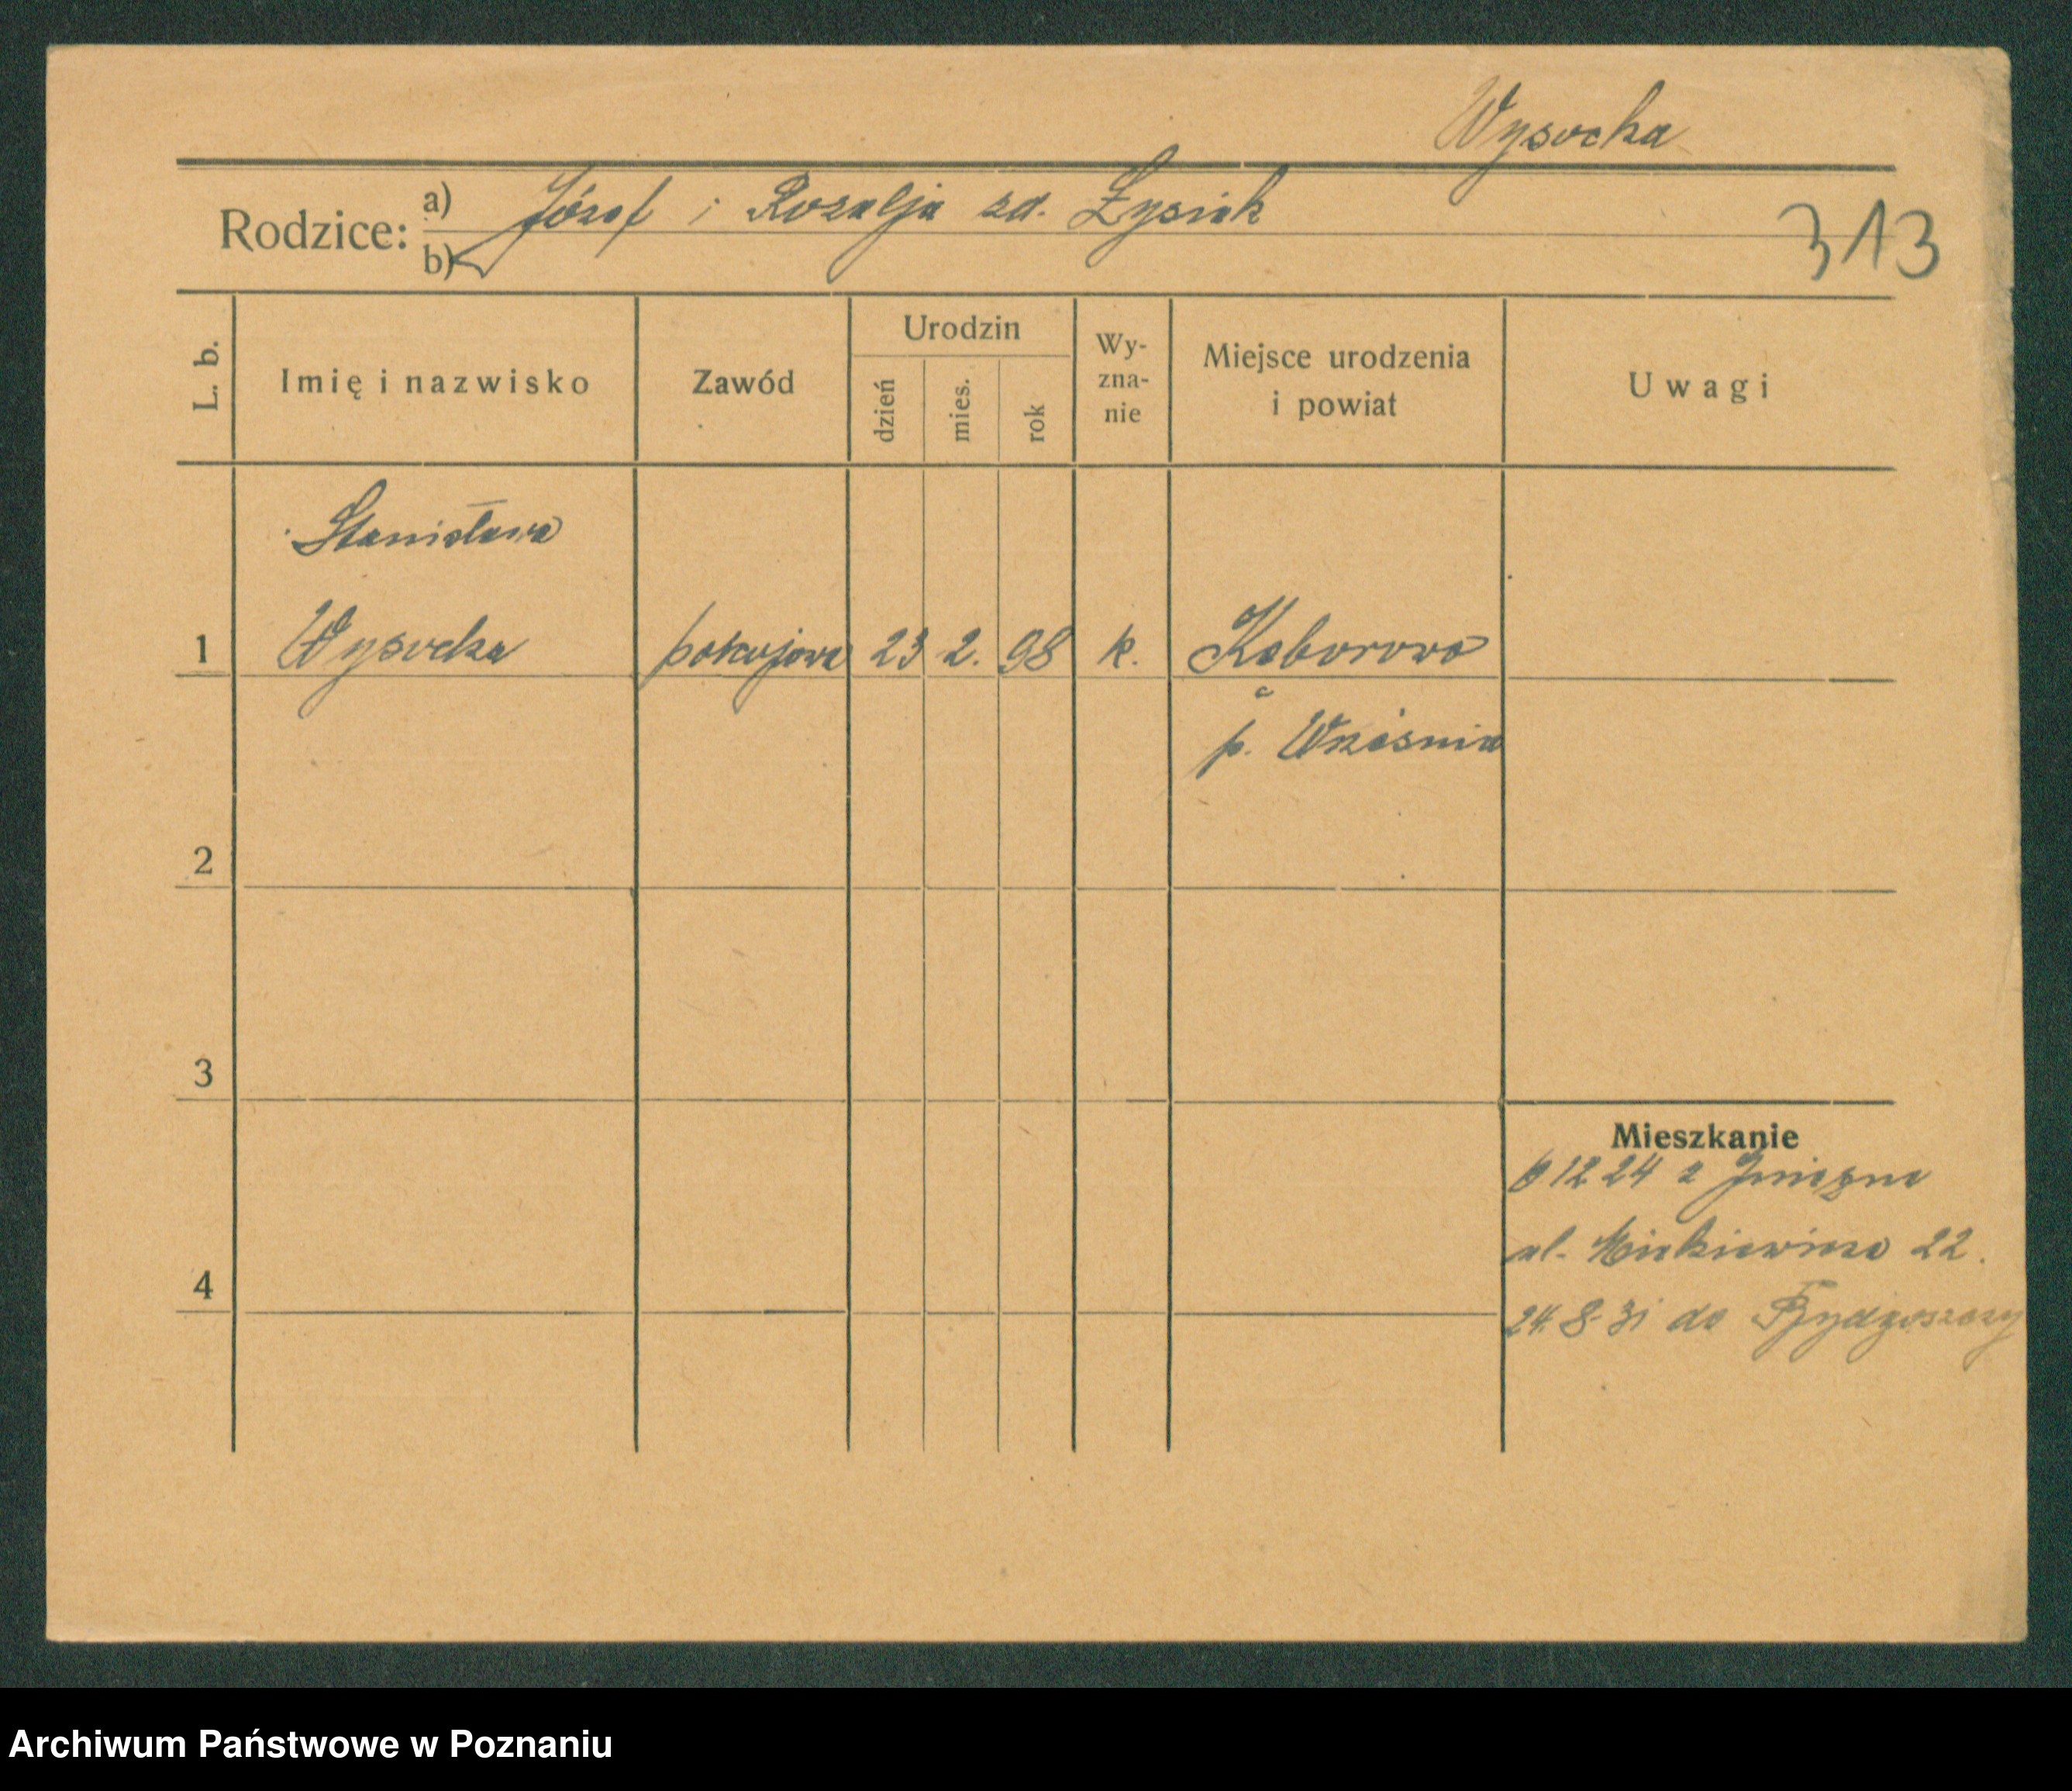 Wysocka
Rodzice: a) Józef i Rozalja zd. Łysiak
b)
313
L. b. Imię i nazwisko Zawód Urodzin dzień mies. rok Wy-zna-nie Miejsce urodzenia i powiat Uwagi
Stanisława
1 Wysocka pokojowa 23 2. 98 k. Kaborowo
p. Września
2
3
Mieszkanie
6 12 24 z Gniezna
ul. Mickiewicza 22.
4
24.8.31 do Bydgoszczy
Archiwum Państwowe w Poznaniu